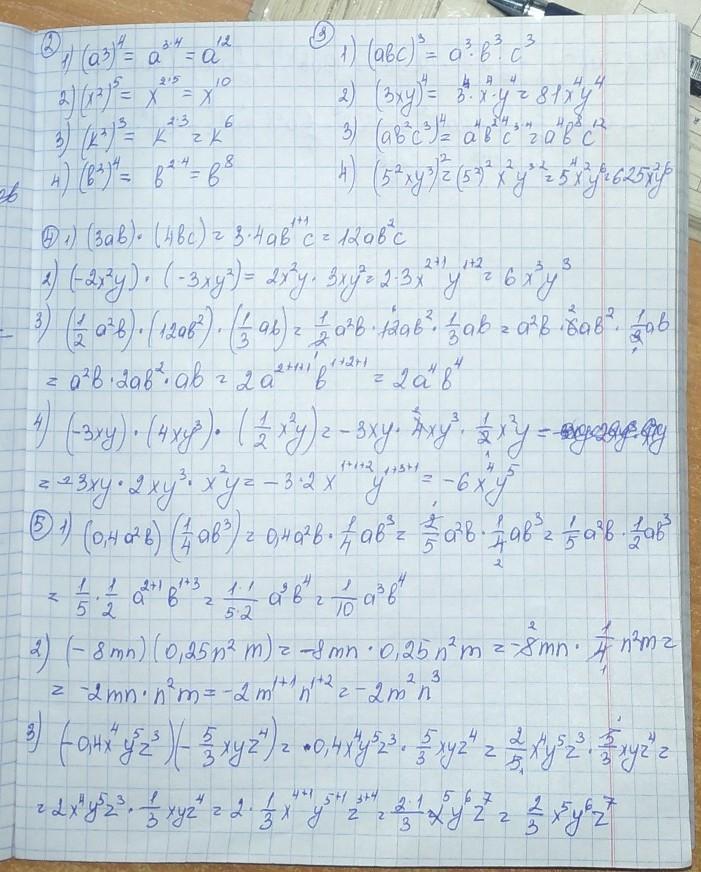 ② 1) (a³)⁴ = a³·⁴ = a¹²
2) (x²)⁵ = x²·⁵ = x¹⁰
3) (k²)³ = k²·³ = k⁶
4) (b²)⁴ = b²·⁴ = b⁸
③ 1) (abc)³ = a³·b³·c³
2) (3xy)⁴ = 3⁴·x⁴·y⁴ = 81x⁴y⁴
3) (ab²c³)⁴ = a⁴b²·⁴c³·⁴ = a⁴b⁸c¹²
4) (5²xy³)² = (5²)²x²y³·² = 5⁴x²y⁶ = 625x²y⁶
④ 1) (3ab)·(4bc) = 3·4ab¹⁺¹c = 12ab²c
2) (-2x²y)·(-3xy²) = 2x²y·3xy² = 2·3x²⁺¹y¹⁺² = 6x³y³
3) (1/2 a²b)·(12ab²)·(1/3 ab) = 1/2 a²b·12ab²·1/3 ab = a²b·6ab²·1/3 ab
= a²b·2ab²·ab = 2a²⁺¹⁺¹b¹⁺²⁺¹ = 2a⁴b⁴
4) (-3xy)·(4xy³)·(1/2 x²y) = -3xy·4xy³·1/2 x²y =
= -3xy·2xy³·x²y = -3·2x¹⁺¹⁺²y¹⁺³⁺¹ = -6x⁴y⁵
⑤ 1) (0,4a²b)(1/4 ab³) = 0,4a²b·1/4 ab³ = 2/5 a²b·1/4 ab³ = 1/5 a²b·1/2 ab³
= 1/5·1/2 a²⁺¹b¹⁺³ = 1·1/5·2 a³b⁴ = 1/10 a³b⁴
2) (-8mn)(0,25n²m) = -8mn·0,25n²m = -8mn·1/4 n²m =
= -2mn·n²m = -2m¹⁺¹n¹⁺² = -2m²n³
3) (-0,4x⁴y⁵z³)(-5/3 xyz⁴) = 0,4x⁴y⁵z³·5/3 xyz⁴ = 2/5 x⁴y⁵z³·5/3 xyz⁴ =
= 2x⁴y⁵z³·1/3 xyz⁴ = 2·1/3 x⁴⁺¹y⁵⁺¹z³⁺⁴ = 2·1/3 x⁵y⁶z⁷ = 2/3 x⁵y⁶z⁷